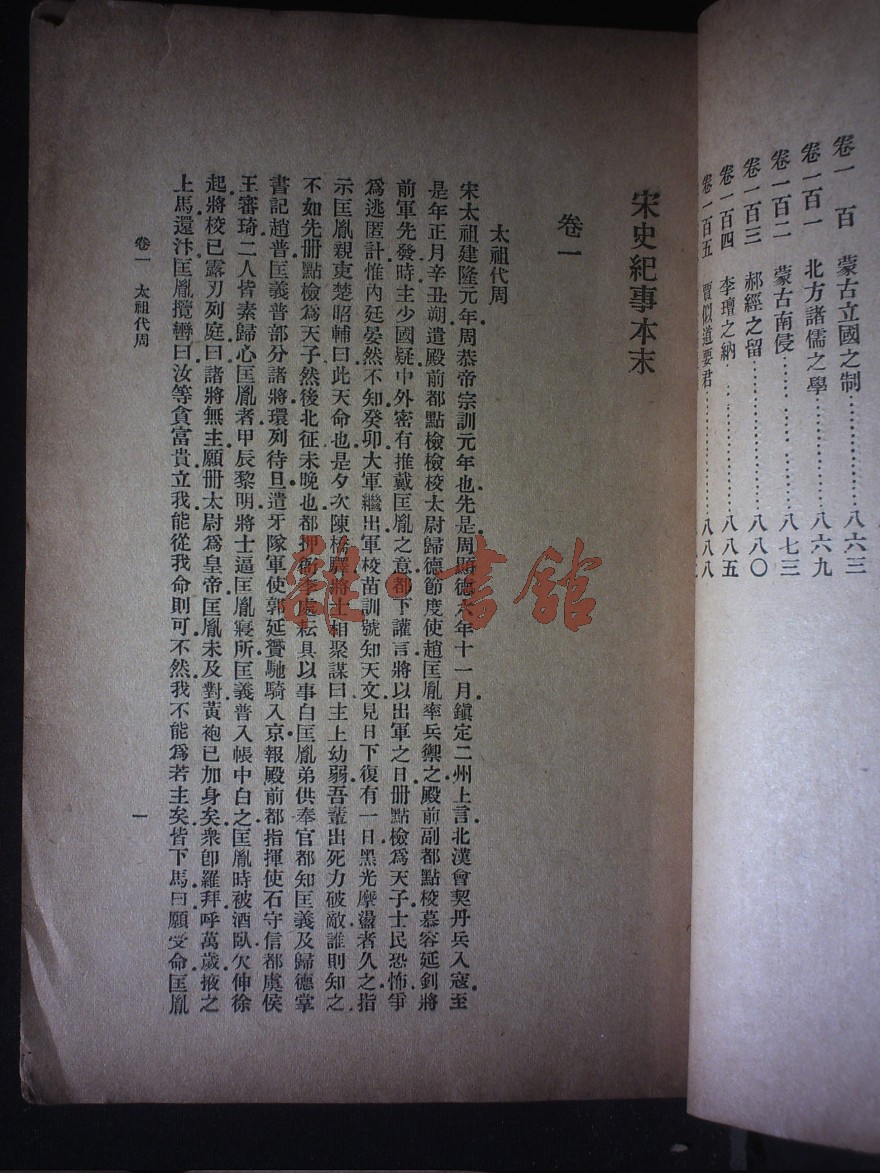 卷一百 蒙古立國之制……………八六三
卷一百一 北方諸儒之學……………八六九
卷一百二 蒙古南侵……………八七三
卷一百三 郝經之留……………八八〇
卷一百四 李璮之納……………八八五
卷一百五 賈似道要君……………八八八
宋史紀事本末
卷一
太祖代周
宋太祖建隆元年周恭帝宗訓元年也先是周顯德六年十一月鎮定二州上言北漢會契丹兵入寇至
是年正月辛丑朔遣殿前都點檢檢校太尉歸德節度使趙匡胤率兵禦之殿前副都點校慕容延釗將
前軍先發時主少國疑中外密有推戴匡胤之意都下讙言將以出軍之日册點檢爲天子士民恐怖爭
爲逃匿計惟內廷晏然不知癸卯大軍繼出軍校苗訓號知天文見日下復有一日黑光摩盪者久之指
示匡胤親吏楚昭輔曰此天命也是夕次陳橋驛將士相聚謀曰主上幼弱吾輩出死力破敵誰則知之
不如先册點檢爲天子然後北征未晚也都押衙李處耘具以事白匡胤弟供奉官都知匡義及歸德掌
書記趙普匡義普部分諸將環列待旦遣牙隊軍使郭延贇馳騎入京報殿前都指揮使石守信都虞侯
王審琦二人皆素歸心匡胤者甲辰黎明將士逼匡胤寢所匡義普入帳中白之匡胤時被酒臥欠伸徐
起將校已露刃列庭曰諸將無主願册太尉爲皇帝匡胤未及對黃袍已加身矣衆卽羅拜呼萬歲掖之
上馬還汴匡胤攬轡曰汝等貪富貴立我能從我命則可不然我不能爲若主矣皆下馬曰願受命匡胤
卷一 太祖代周
一
雜·書館